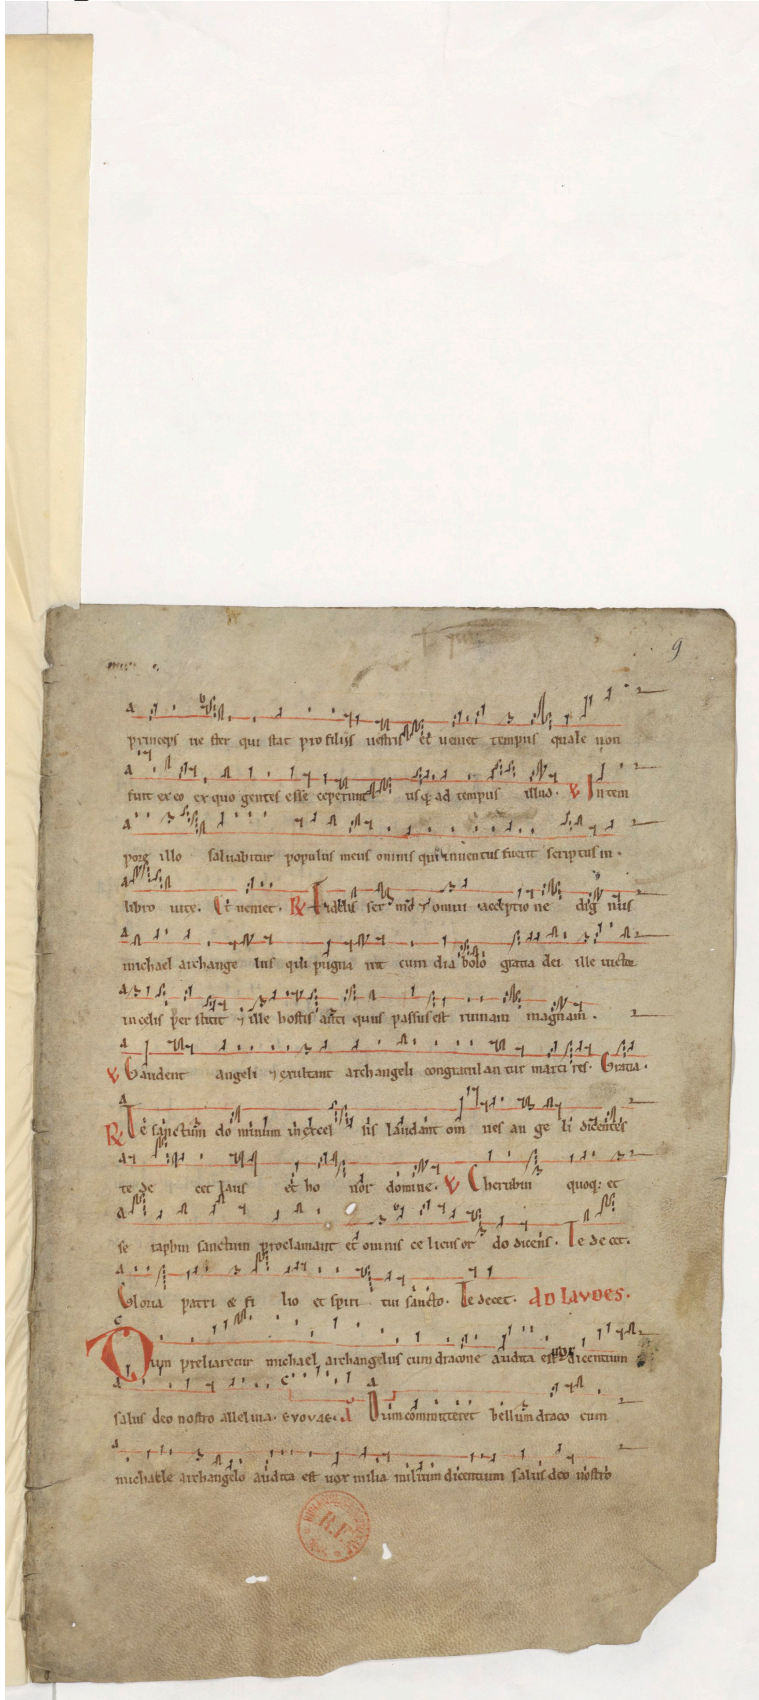 9
princeps ne ster qui stat pro filijs uestris et ueniet tempus quale non
fuit ex eo ex quo gentes esse ceperunt usq; ad tempus illud. V In tem
pore illo saluabitur populus meus omnis qui inuentus fuerit scriptus in.
libro uite. Et ueniet. R Fidelis ser mo & omni acceptio ne dig nus
michael archange lus qui pugna uit cum dia bolo gratia dei ille uictor
in celis per stitit & ille hostis anti quus passus est ruinam magnam.
V Gaudent angeli & exultant archangeli congratulan tur marti res. Gratia.
R Te sanctum do minum in excel sis laudant om nes an ge li dicentes
te de cet laus et ho nor domine. V Cherubin quoq; et
se raphin sanctum proclamant et omnis ce licus or do dicens. Te decet.
Gloria patri & fi lio et spiri tui sancto. Te decet. AD LAVDES.
Dum preliaretur michael archangelus cum dracone audita est uox dicentium
salus deo nostro alleluia. EVOVAE. A Dum committeret bellum draco cum
michaele archangelo audita est uox milia milium dicentium salus deo nostro